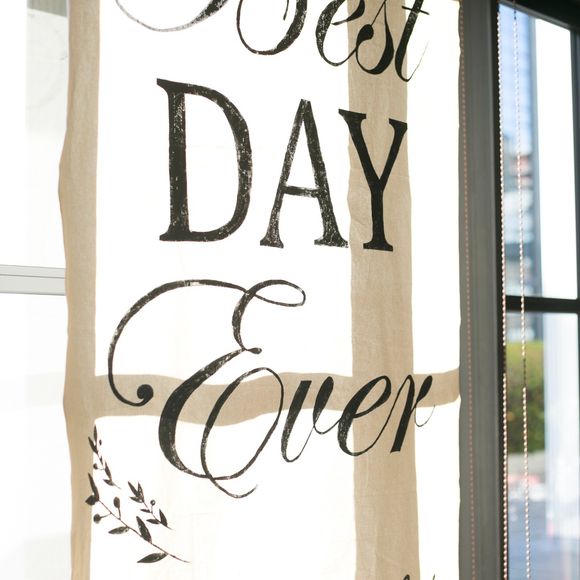 Best
DAY
Ever